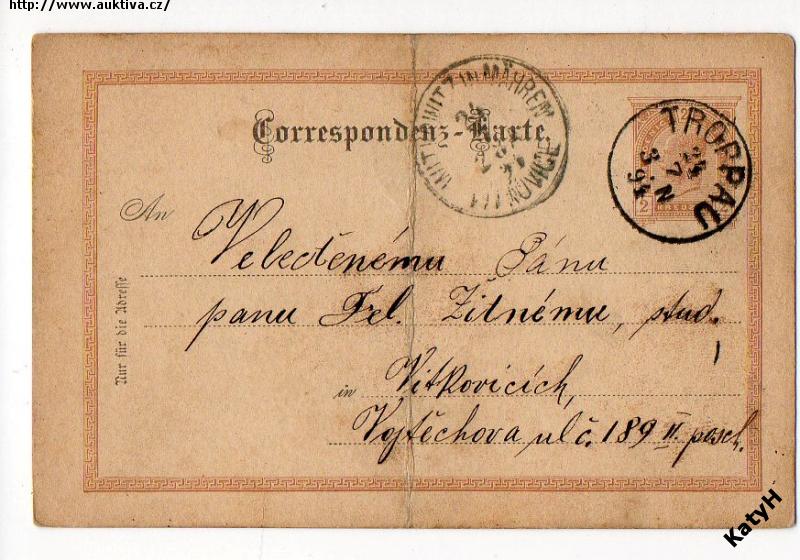 http://www.auktiva.cz/
Correspondenz-Karte.
WITKOWITZ IN MÄHREN
TROPPAU
24
7 N
3 94
2
An
Velectěnému Pánu
panu Frl. Žitnému, stud.
in Vitkovicích,
Vojtěchova ul č. 189 II. posch.
Nur für die Adresse
KatyH